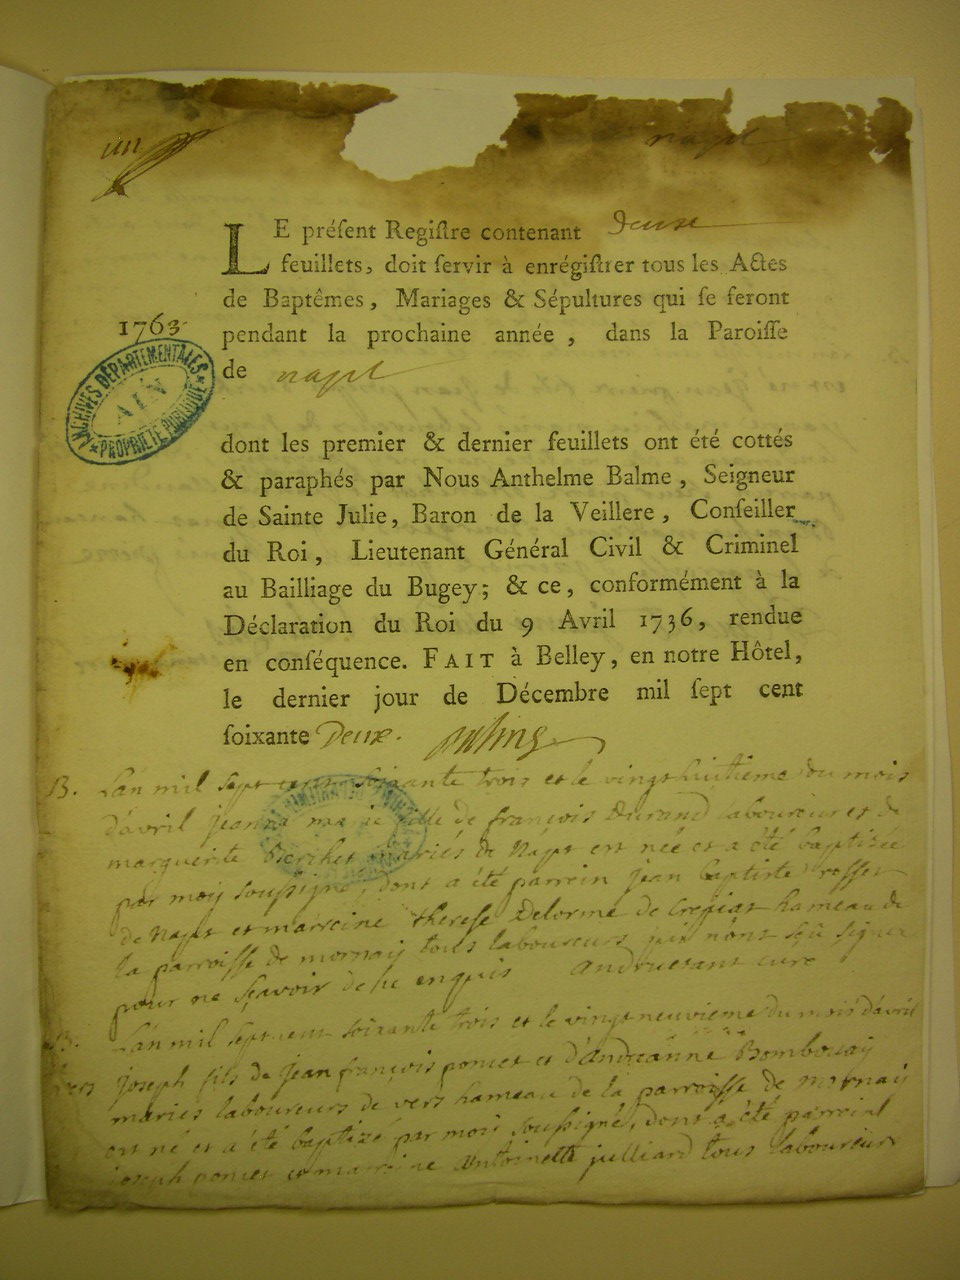 un
napt
LE préſent Regiſtre contenant Deuxe
feuillets, doit ſervir à enrégiſtrer tous les Actes
de Baptêmes, Mariages & Sépultures qui ſe feront
1763
pendant la prochaine année, dans la Paroiſſe
de napt
ARCHIVES DÉPARTEMENTALES
AIN
PROPRIÉTÉ PUBLIQUE
dont les premier & dernier feuillets ont été cottés
& paraphés par Nous Anthelme Balme, Seigneur
de Sainte Julie, Baron de la Veillere, Conſeiller
du Roi, Lieutenant Général Civil & Criminel
au Bailliage du Bugey; & ce, conformément à la
Déclaration du Roi du 9 Avril 1736, rendue
en conſéquence. FAIT à Belley, en notre Hôtel,
le dernier jour de Décembre mil ſept cent
ſoixante Deux.
B. L'an mil sept cent soixante trois et le vingt huitieme du mois
d'avril jeanne marie fille de françois Durand laboureur et de
marguerite mariés de Napt est née et a été baptisée
par moy soussigné, dont a été parrein jean baptiste
de Napt et marreine therese Delorme de Crepiat hameau de
la parroisse de mornay tous laboureurs qui n'ont sçû signer
pour ne sçavoir de ce enquis Andruetant curé
B. L'an mil sept cent soixante trois et le vingt neuvieme du mois d'avril
vers joseph fils de jean françois poncet et d'Andréanne Bombouay
mariés laboureurs de vers hameau de la parroisse de mornay
est né et a été baptizé par mois soussigné, dont a été parreinl
joseph poncet et marreine Antoinette julliard tous laboureurs